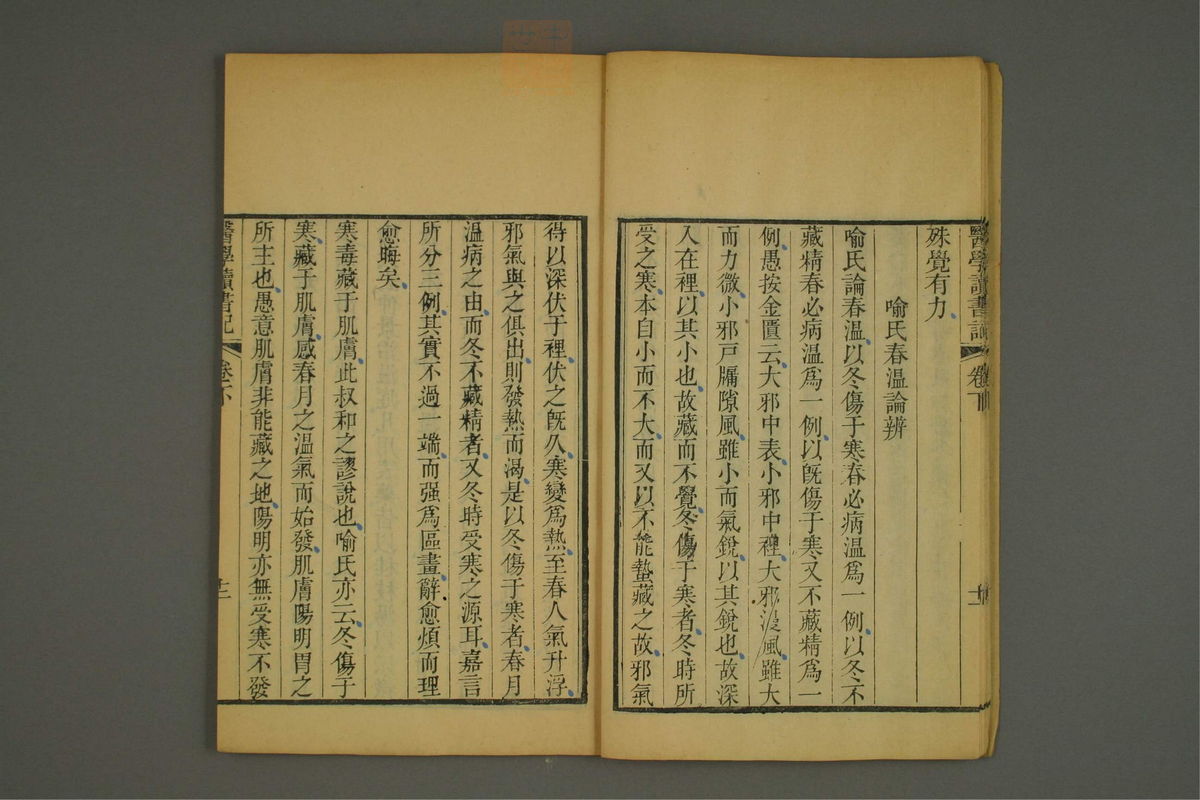 醫學讀書記 卷下 十二
殊覺有力
喻氏春溫論辨
喻氏論春溫以冬傷于寒春必病溫爲一例以冬不
藏精春必病溫爲一例以旣傷于寒又不藏精爲一
例愚按金匱云大邪中表小邪中裡大邪漫風雖大
而力微小邪戸牖隙風雖小而氣銳以其銳也故深
入在裡以其小也故藏而不覺冬傷于寒者冬時所
受之寒本自小而不大而又以不能蟄藏之故邪氣
得以深伏于裡伏之旣久寒變爲熱至春人氣升浮
邪氣與之俱出則發熱而渴是以冬傷于寒者春月
溫病之由而冬不藏精者又冬時受寒之源耳嘉言
所分三例其實不過一端而强爲區畫辭愈煩而理
愈晦矣
寒毒藏于肌膚此叔和之謬說也喻氏亦云冬傷于
寒藏于肌膚感春月之溫氣而始發肌膚陽明胃之
所主也愚意肌膚非能藏之地陽明亦無受寒不發
醫學讀書記 卷下 十二